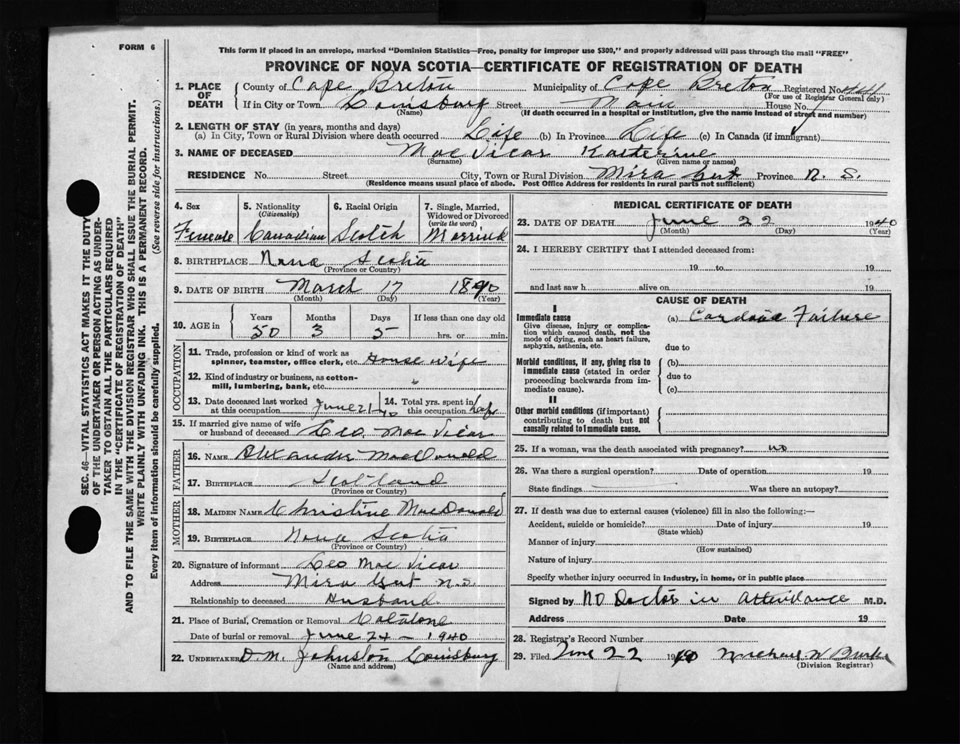 FORM 6
This form if placed in an envelope, marked "Dominion Statistics—Free, penalty for improper use $300," and properly addressed will pass through the mail "FREE"
PROVINCE OF NOVA SCOTIA—CERTIFICATE OF REGISTRATION OF DEATH
1. PLACE OF DEATH County of Cape Breton Municipality of Cape Breton Registered No.
(For use of Registrar General only)
If in City or Town Louisburg Street Main House No. 1
(Name) (If death occurred in a hospital or institution, give the name instead of street and number)
2. LENGTH OF STAY (in years, months and days)
(a) In City, Town or Rural Division where death occurred Life (b) In Province Life (c) In Canada (if immigrant)
3. NAME OF DECEASED MacVicar Katherine
(Surname) (Given name or names)
RESIDENCE No. Street City, Town or Rural Division Mira Gut Province N. S.
(Residence means usual place of abode. Post Office Address for residents in rural parts not sufficient)
4. Sex Female
5. Nationality (Citizenship) Canadian
6. Racial Origin Scotch
7. Single, Married, Widowed or Divorced (write the word) Married
8. BIRTHPLACE Nova Scotia
(Province or Country)
9. DATE OF BIRTH March 17 1890
(Month) (Day) (Year)
10. AGE in Years 50 Months 3 Days 5 If less than one day old hrs. or min.
OCCUPATION
11. Trade, profession or kind of work as spinner, teamster, office clerk, etc. House Wife
12. Kind of industry or business, as cotton-mill, lumbering, bank, etc. "
13. Date deceased last worked at this occupation June 21-40
14. Total yrs. spent in this occupation Life
15. If married give name of wife or husband of deceased Leo MacVicar
FATHER
16. NAME Alexander MacDonald
17. BIRTHPLACE Scotland
(Province or Country)
MOTHER
18. MAIDEN NAME Christine MacDonald
19. BIRTHPLACE Nova Scotia
(Province or Country)
20. Signature of informant Leo MacVicar
Address Mira Gut N.S.
Relationship to deceased Husband
21. Place of Burial, Cremation or Removal Catalone
Date of burial or removal June 24 - 1940
22. UNDERTAKER D.M. Johnston Louisburg
(Name and address)
MEDICAL CERTIFICATE OF DEATH
23. DATE OF DEATH June 22 1940
(Month) (Day) (Year)
24. I HEREBY CERTIFY that I attended deceased from:
19 to 19
and last saw h alive on 19
CAUSE OF DEATH
I
Immediate cause (a) Cardiac Failure
Give disease, injury or complication which caused death, not the mode of dying, such as heart failure, asphyxia, asthenia, etc.
due to
Morbid conditions, if any, giving rise to immediate cause (stated in order proceeding backwards from immediate cause).
(b)
due to
(c)
II
Other morbid conditions (if important) contributing to death but not causally related to immediate cause.
25. If a woman, was the death associated with pregnancy? no
26. Was there a surgical operation? Date of operation 19
State findings Was there an autopsy?
27. If death was due to external causes (violence) fill in also the following:—
Accident, suicide or homicide? Date of injury 19
(State which)
Manner of injury
(How sustained)
Nature of injury
Specify whether injury occurred in industry, in home, or in public place
Signed by No Doctor in attendance M.D.
Address Date 19
28. Registrar's Record Number
29. Filed June 22 1940 Michael W Burke
(Division Registrar)
SEC. 46—VITAL STATISTICS ACT MAKES IT THE DUTY
OF THE UNDERTAKER OR PERSON ACTING AS UNDER-
TAKER TO OBTAIN ALL THE PARTICULARS REQUIRED
IN THE "CERTIFICATE OF REGISTRATION OF DEATH"
AND TO FILE THE SAME WITH THE DIVISION REGISTRAR WHO SHALL ISSUE THE BURIAL PERMIT.
WRITE PLAINLY WITH UNFADING INK. THIS IS A PERMANENT RECORD.
Every item of information should be carefully supplied. (See reverse side for instructions.)